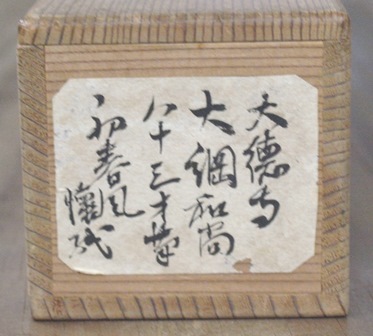 大徳寺
大綱和尚
八十三才筆
初春風
懐紙